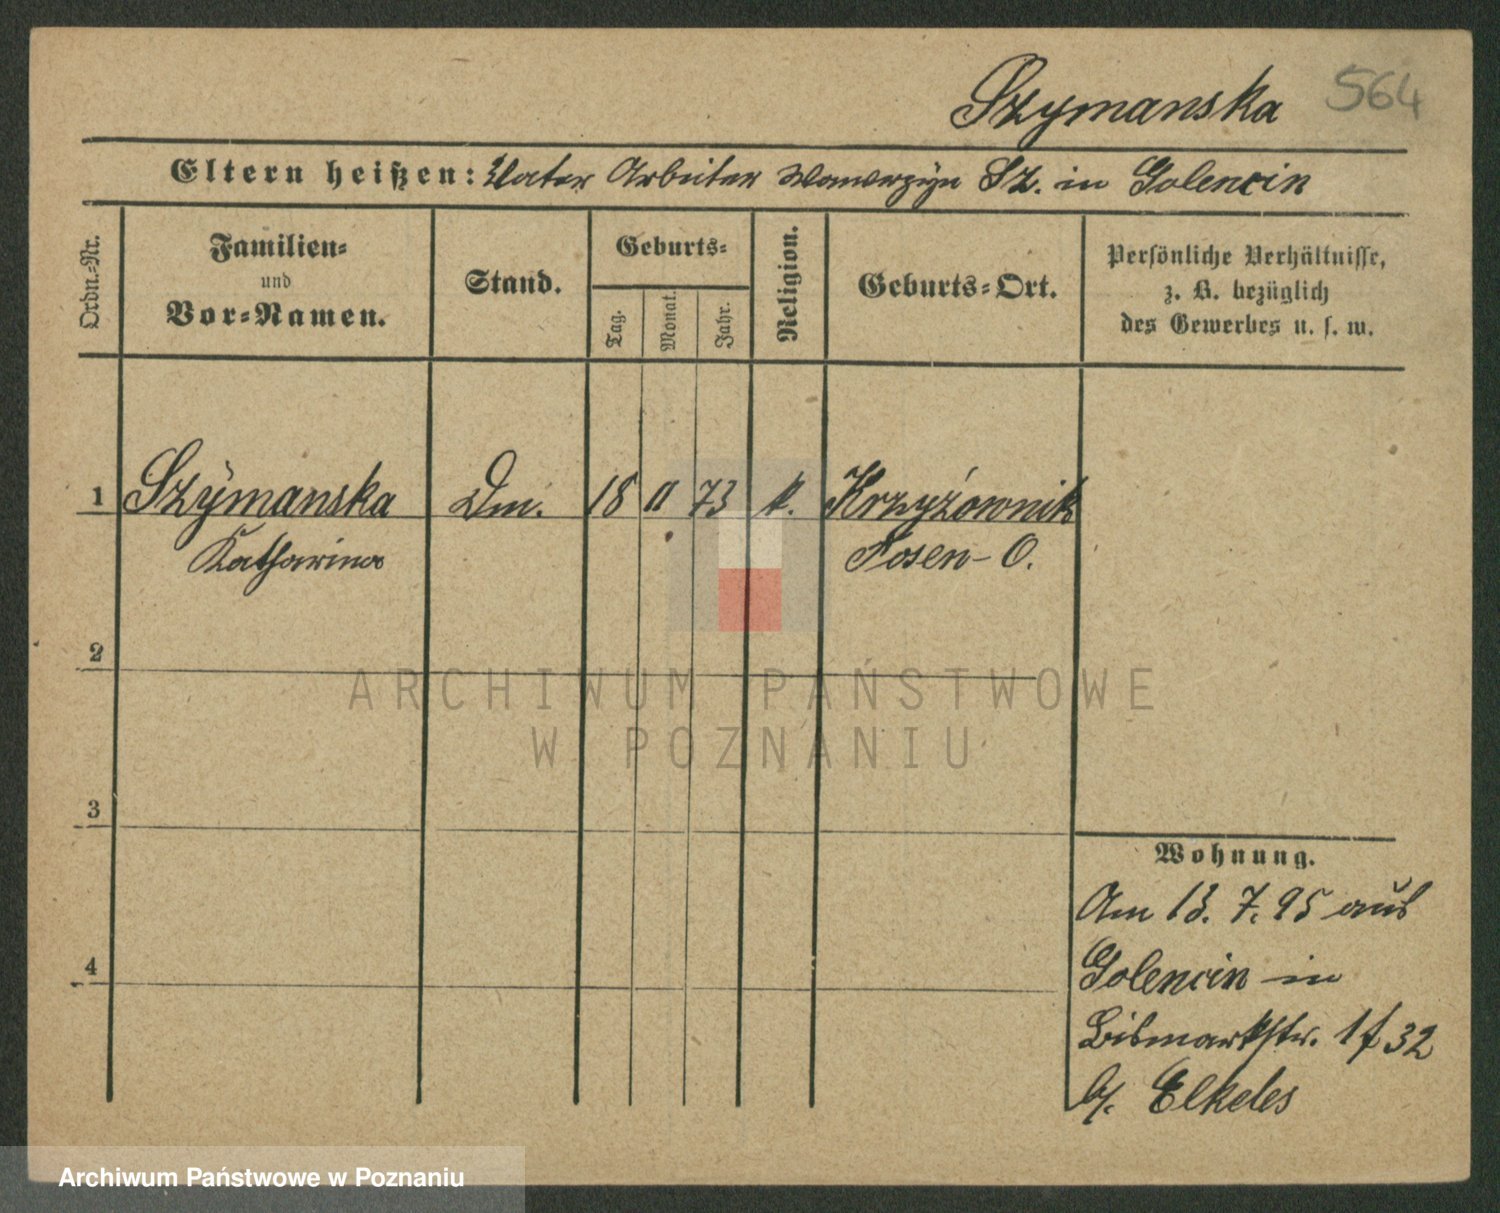 Szymanska 564
Eltern heißen: Vater Arbeiter Wawrzyn Sz. in Golencin
Ordn.-Nr.
Familien-
und
Vor-Namen.
Stand.
Geburts-
Tag.
Monat.
Jahr.
Religion.
Geburts-Ort.
Persönliche Verhältnisse,
z. B. bezüglich
des Gewerbes u. s. w.
1 Szymanska Dm. 18 11 73 k. Krzyżownik
Katharina Posen-O.
2
ARCHIWUM PAŃSTWOWE
W POZNANIU
3
Wohnung.
Am 13. 7. 95 aus
4
Golencin in
Bismarkstr. 1 f 32
b/. Elkeles
Archiwum Państwowe w Poznaniu